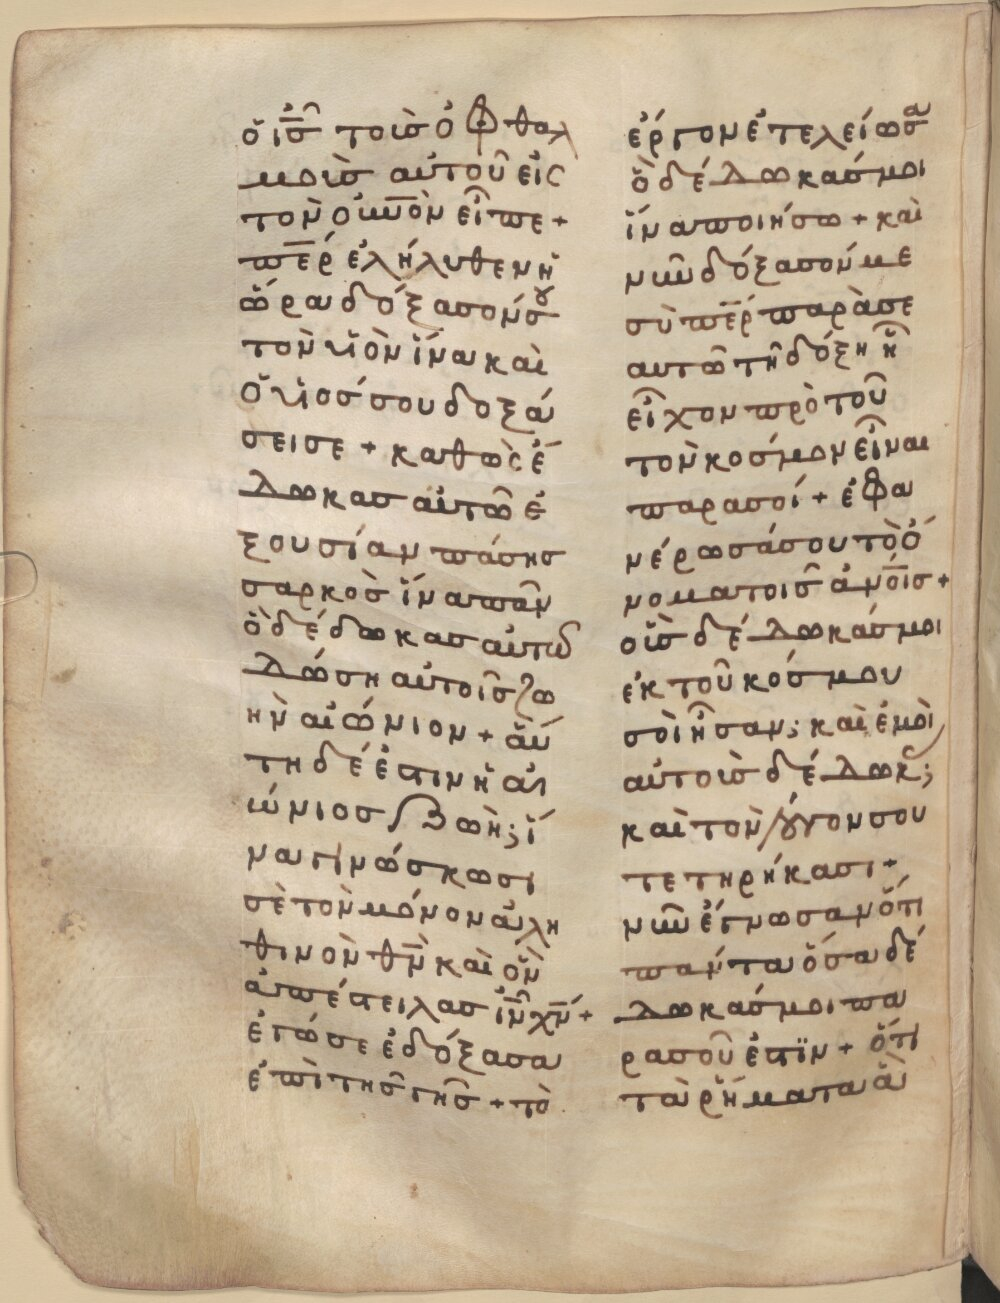 ὁ ι̅σ̅ τοὺσ ὀφθαλ
μοὺσ αὐτοῦ εἰς
τὸν ου̅ν̅ο̅ν εἶπε +
π̅ε̅ρ ἐλήλυθεν ἡ
ὥρα δόξασόν σου
τὸν υἱὸν ἵνα καὶ
ὁ υἱόσ σου δοξά
σει σε + καθὼς ἔ
δωκασ αὐτῶ ἐ
ξουσίαν πάσησ
σαρκὸσ ἵνα πᾶν
ὃ δέδωκασ αὐτῶ
δώση αὐτοῖσ ζω
ὴν αἰώνιον + αὕ
τη δέ ἐστιν ἡ αἰ
ώνιοσ ζωὴ; ἵ
να γινώσκωσι
σὲ τὸν μόνον ἀλη
θινὸν θ̅ν̅ καὶ ὃν
ἀπέστειλασ ι̅ν̅ χ̅ν̅ +
ἐγώ σε ἐδόξασα
ἐπὶ τῆσ γῆσ + τὸ
ἔργον ἐτελείωσα
ὃ δέδωκάσ μοι
ἵνα ποιήσω + καὶ
νῦν δόξασόν με
σὺ π̅ε̅ρ παρὰ σε
αυτῶ τῆ δόξη ἧ
εἶχον πρὸ τοῦ
τὸν κοσμον εἶναι
παρα σοί + ἐφα
νέρωσά σου τὸ ὄ
νομα τοισ α̅ν̅ο̅ισ +
οὓσ δέδωκάσ μοι
ἐκ τοῦ κόσμου
σοὶ ἦσαν; καὶ ἐμοὶ
αὐτοὺσ δέδωκ;
καὶ τὸν λόγον σου
τετηρήκασι +
νῦν ἔγνωσαν ὅτι
πάντα ὅσα δέ
δωκάσ μοι πα
ρα σοῦ ἐστϊν + ὅτι
τὰ ῥήματα ἃ